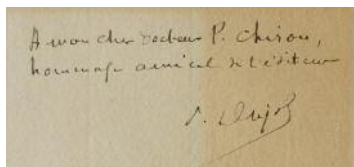 A mon cher docteur P. Chiron,
hommage amical de l'éditeur